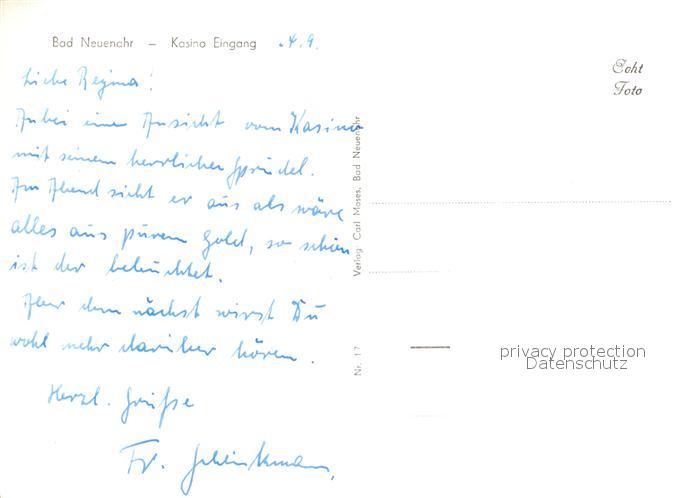 Bad Neuenahr – Kasino Eingang
4.9.
Liebe Regina!
Anbei eine Ansicht vom Kasino
mit seinem herrlichen Sprudel.
Am Abend sieht er aus als wäre
alles aus purem Gold, so schön
ist der beleuchtet.
Aber demnächst wirst Du
wohl mehr darüber hören.
Herzl. Grüße
Fr.
Nr. 17
Verlag: Carl Moses, Bad Neuenahr
Echt
Foto
privacy protection
Datenschutz